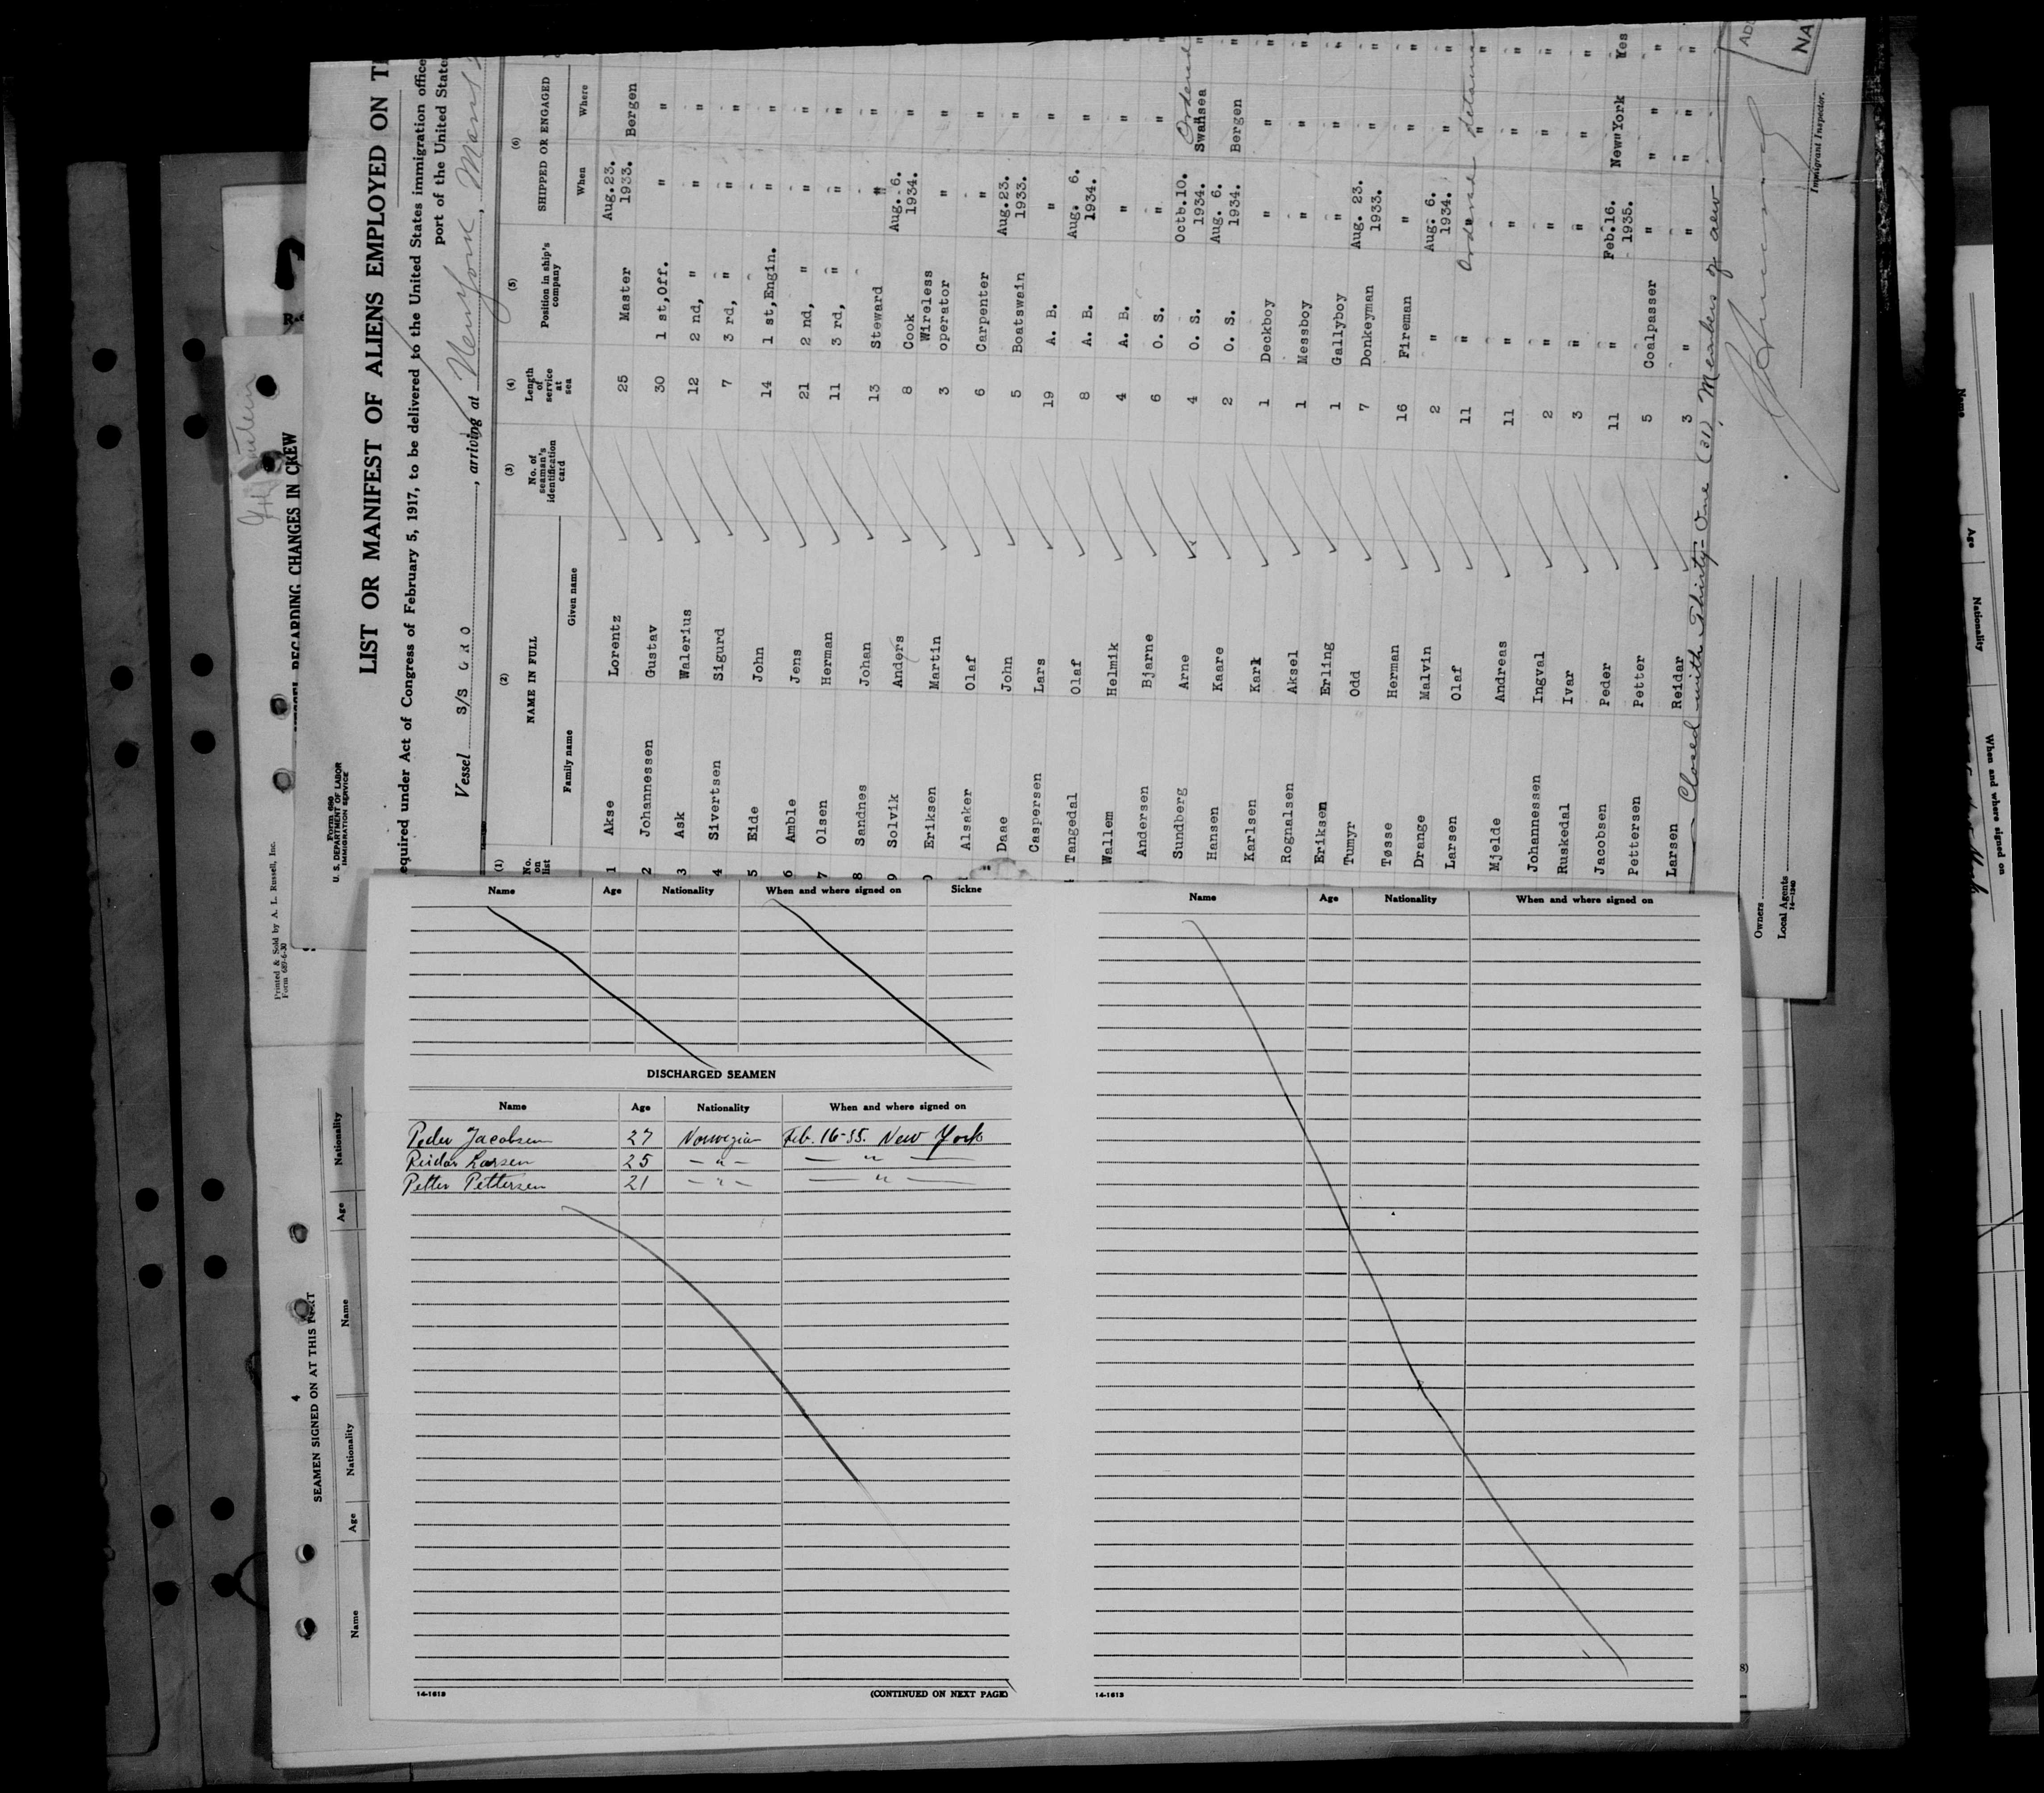 LIST OR MANIFEST OF ALIENS EMPLOYED ON
Form 680
U. S. DEPARTMENT OF LABOR
IMMIGRATION SERVICE
equired under Act of Congress of February 5, 1917, to be delivered to the United States immigration office
port of the United State
Vessel S/S , arriving at New York,
(1) (2) (3) (4) (5) (6)
No. on list NAME IN FULL No. of seaman's identification card Length of service at sea Position in ship's company SHIPPED OR ENGAGED
Family name Given name When Where
1 Akse Lorentz 25 Master Aug.23. 1933. Bergen
2 Johannessen Gustav 30 1 st,Off. " "
3 Ask Walerius 12 2 nd, " " "
4 Sivertsen Sigurd 7 3 rd, " " "
5 Eide John 14 1 st,Engin. " "
6 Amble Jens 21 2 nd, " " "
7 Olsen Herman 11 3 rd, " " "
8 Sandnes Johan 13 Steward " "
9 Solvik Anders 8 Cook Aug. 6. 1934. "
Eriksen Martin 3 Wireless operator " "
Alsaker Olaf 6 Carpenter " "
Daae John 5 Boatswain Aug.23. 1933. "
Caspersen Lars 19 A. B. " "
Tangedal Olaf 8 A. B. Aug. 6. 1934. "
Wallem Helmik 4 A. B. " "
Andersen Bjarne 6 O. S. " "
Sundberg Arne 4 O. S. Octb.10. 1934. Swansea Ordered
Hansen Kaare 2 O. S. Aug. 6. 1934. Bergen
Karlsen Karl 1 Deckboy " "
Rognalsen Aksel 1 Messboy " "
Eriksen Erling 1 Gallyboy " "
Tumyr Odd 7 Donkeyman Aug. 23. 1933. "
Tøsse Herman 16 Fireman " "
Drange Malvin 2 " Aug. 6. 1934. "
Larsen Olaf 11 " " " Ordered detained
Mjelde Andreas 11 " " "
Johannessen Ingval 2 " " "
Ruskedal Ivar 3 " " "
Jacobsen Peder 11 " Feb.16. 1935. New York Yes
Pettersen Petter 5 Coalpasser " " "
Larsen Reidar 3 " " " "
Closed with Thirty-One (31) Members of crew
Immigrant Inspector.
Owners
Local Agents
14-1240
REGARDING CHANGES IN CREW
Printed & Sold by A. L. Russell, Inc.
Form 689-6-30
4
SEAMEN SIGNED ON AT THIS PORT
Name Age Nationality Name Age Nationality
Name Age Nationality When and where signed on Sickne
DISCHARGED SEAMEN
Name Age Nationality When and where signed on
Peder Jacobsen 27 Norwegian Feb. 16-35. New York
Reidar Larsen 25 — " — — " —
Petter Pettersen 21 — " — — " —
14-1613
(CONTINUED ON NEXT PAGE)
Name Age Nationality When and where signed on
14-1613
Name Age Nationality When and where signed on